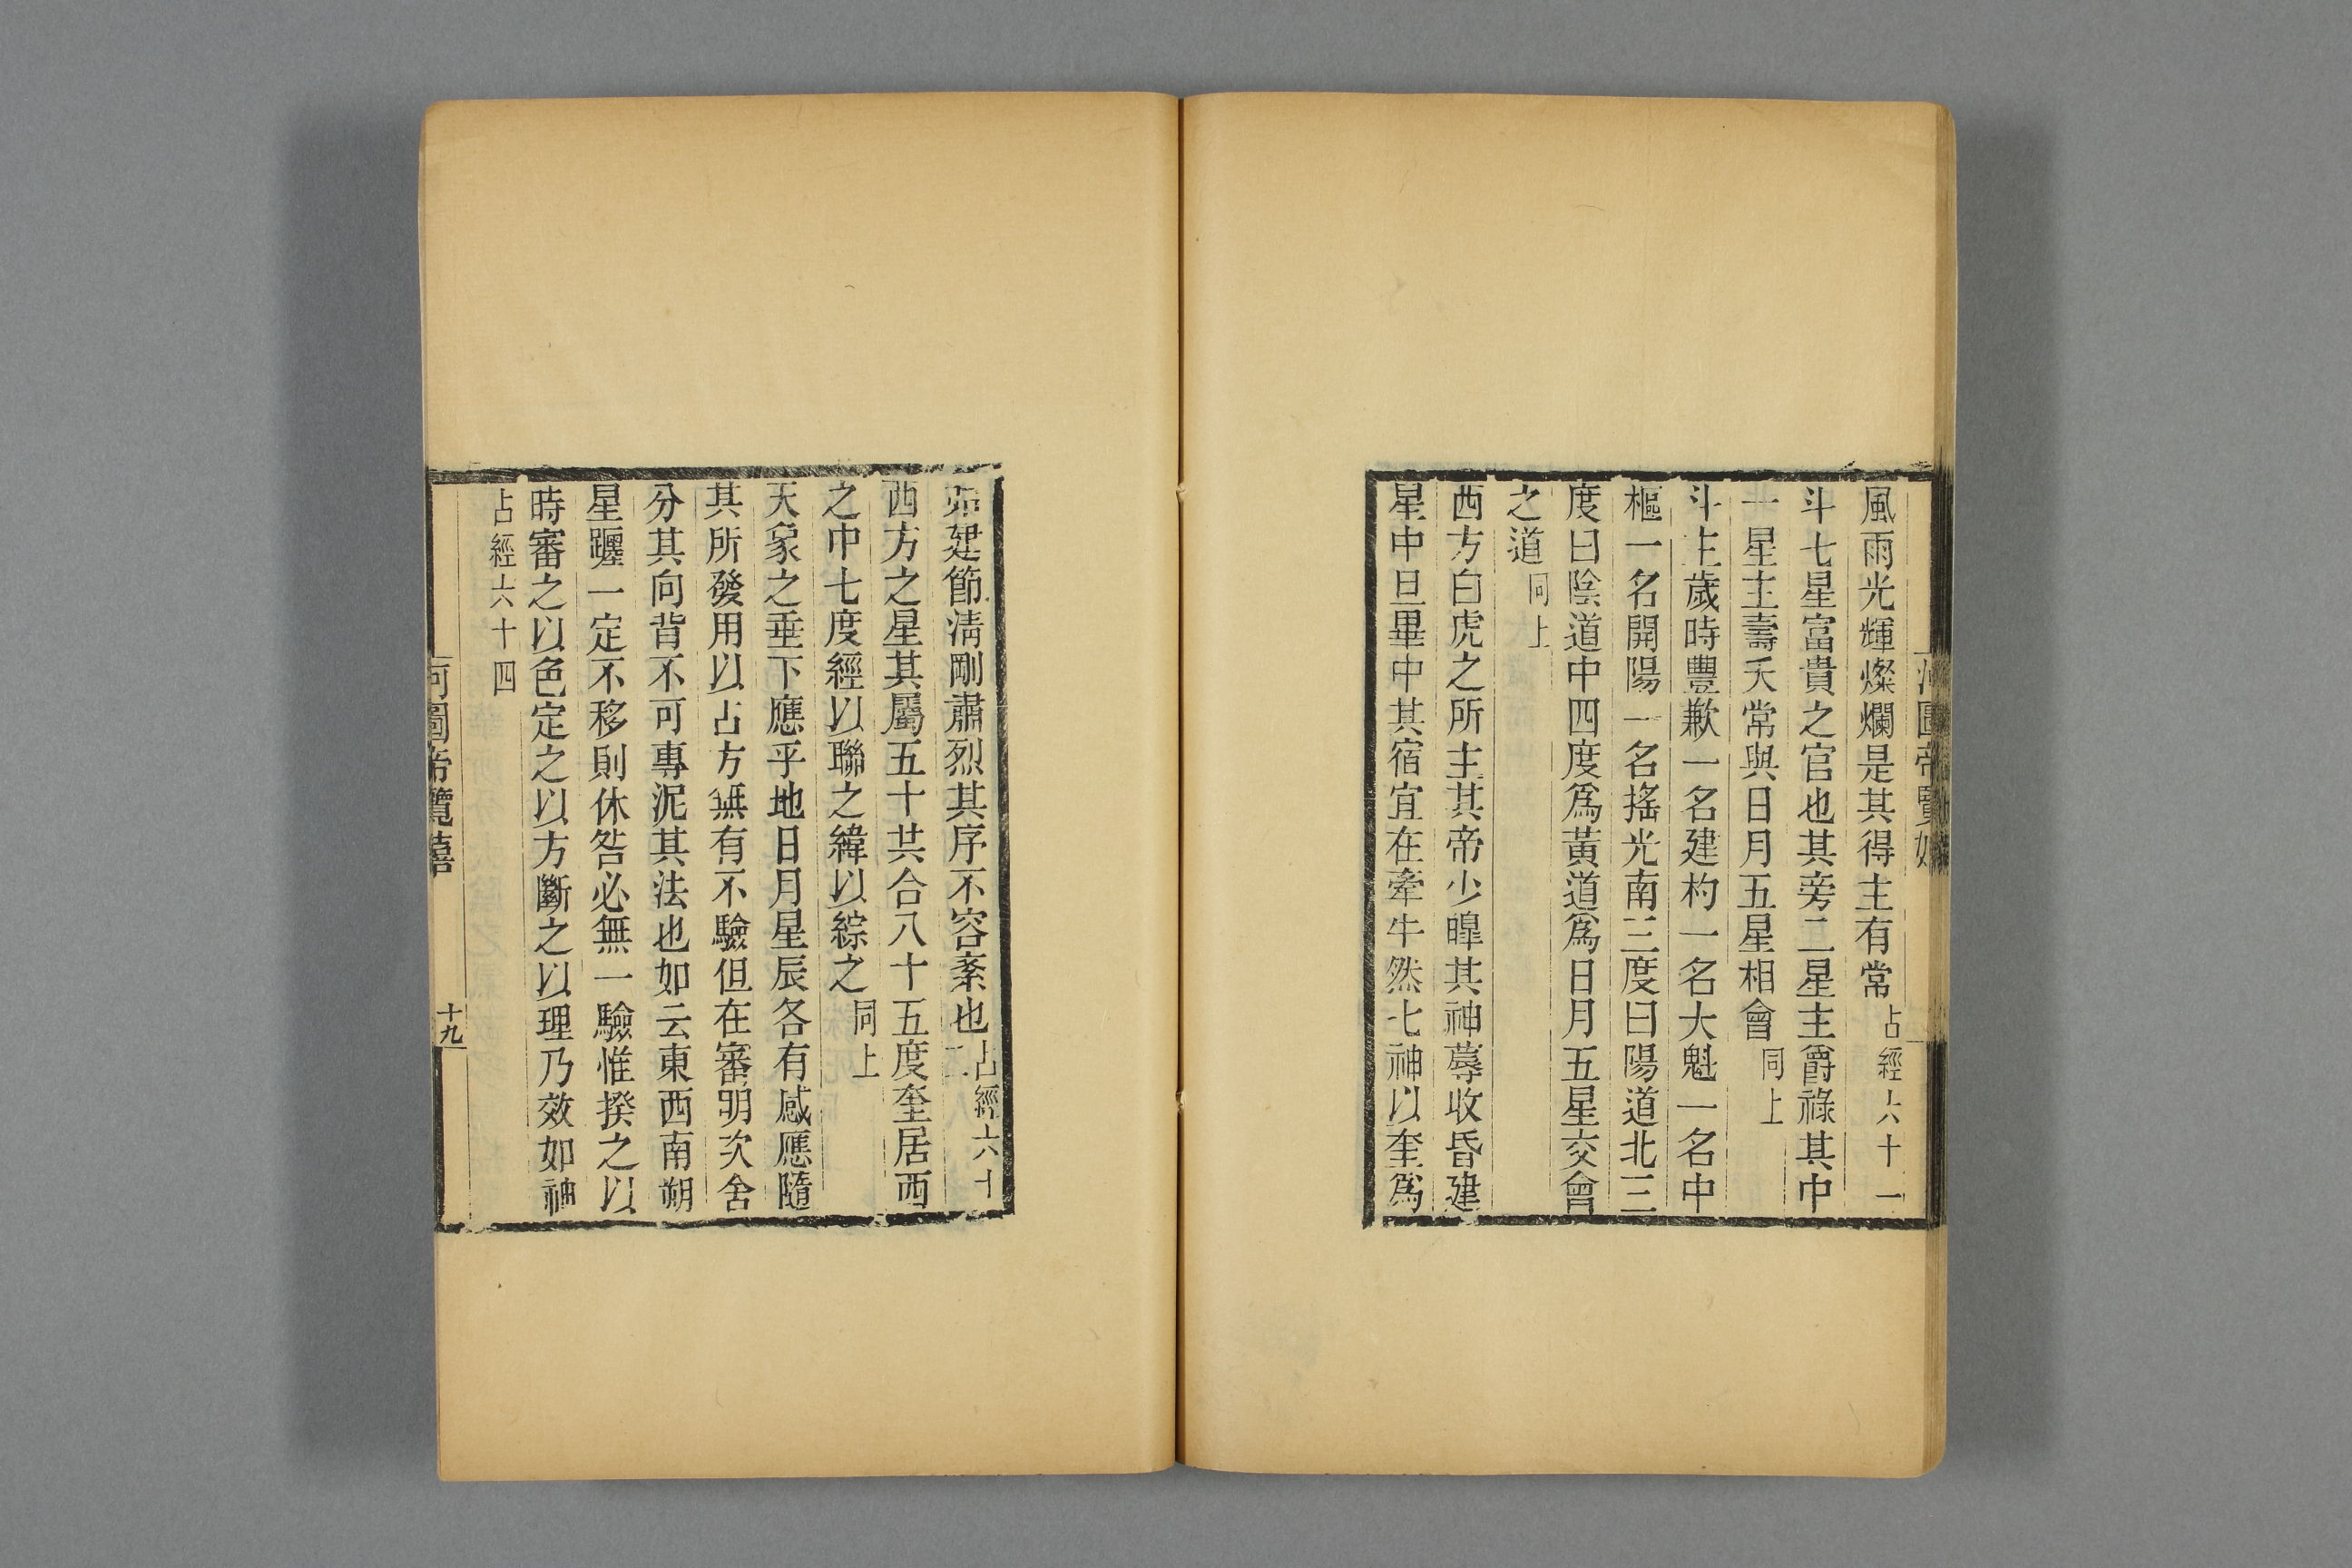 風雨光輝燦爛是其得主有常占經六十一
斗七星富貴之官也其旁二星主爵祿其中
一星主壽夭常與日月五星相會同上
斗主歲時豐歉一名建杓一名大魁一名中
樞一名開陽一名搖光南三度曰陽道北三
度曰陰道中四度爲黃道爲日月五星交會
之道同上
西方白虎之所主其帝少皥其神蓐收昏建
星中旦畢中其宿宜在牽牛然七神以奎爲
建節淸剛肅烈其序不容紊也占經六十二
西方之星其屬五十共合八十五度奎居西
之中七度經以聯之緯以綜之同上
天象之垂下應乎地日月星辰各有感應隨
其所發用以占方無有不驗但在審明次舍
分其向背不可專泥其法也如云東西南朔
星躔一定不移則休咎必無一驗惟揆之以
時審之以色定之以方斷之以理乃效如神
占經六十四
河圖帝覽嬉
十九